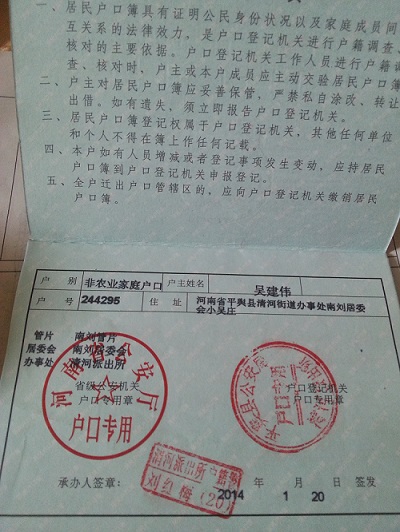 一、居民户口簿具有证明公民身份状况以及家庭成员间
互关系的法律效力，是户口登记机关进行户籍调查、
核对的主要依据。户口登记机关工作人员进行户籍调
查、核对时，户主或本户成员应主动交验居民户口簿
二、户主对居民户口簿应妥善保管，严禁私自涂改、转让
出借。如有遗失，须立即报告户口登记机关。
三、居民户口簿登记权属于户口登记机关，其他任何单位
和个人不得在簿上作任何记载。
四、本户如有人员增减或者登记事项发生变动，应持居民
户口簿到户口登记机关申报登记。
五、全户迁出户口管辖区的，应向户口登记机关缴销居民
户口簿。
户 别 非农业家庭户口 户主姓名 吴建伟
户 号 244295 住 址 河南省平舆县清河街道办事处南刘居委
会小吴庄
管片 南刘管片
居委会 南刘居委会
办事处 清河派出所
河南省公安厅
户口专用
省级公安机关
户口专用章
平舆县公安局
户口专用
户口登记机关
户口专用章
清河派出所户籍
刘红梅(20)
承办人签章： 2014 年 1 月 20 日 签发